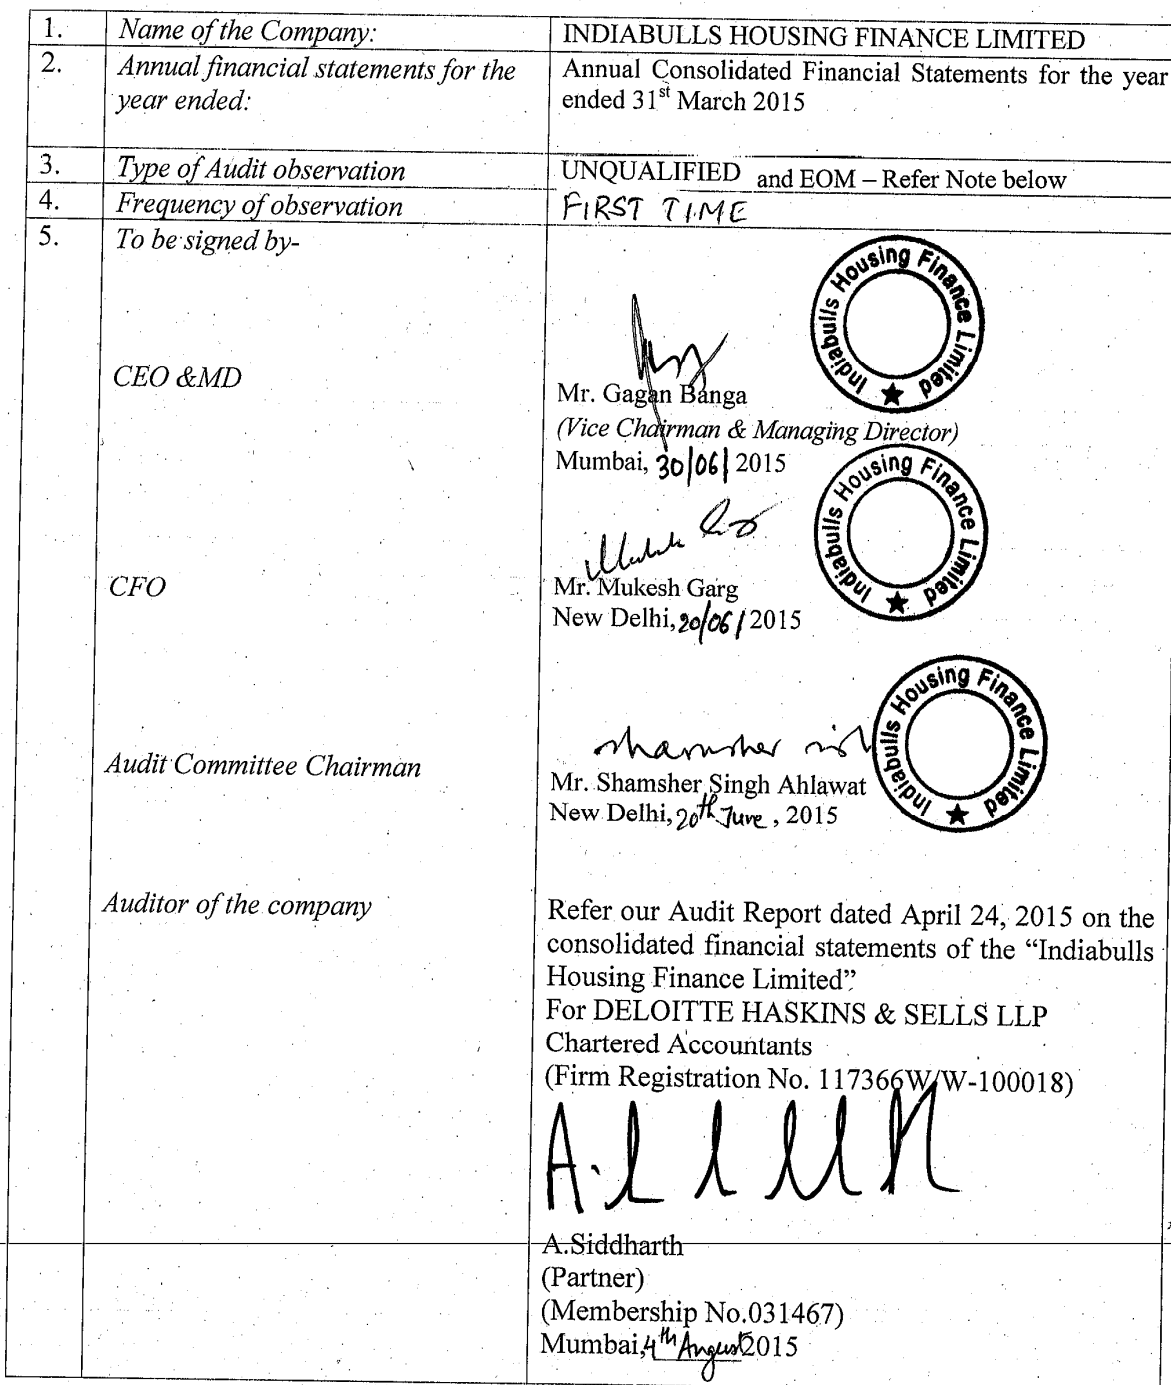 1. Name of the Company: INDIABULLS HOUSING FINANCE LIMITED
2. Annual financial statements for the Annual Consolidated Financial Statements for the year
year ended: ended 31st March 2015
3. Type of Audit observation UNQUALIFIED and EOM – Refer Note below
4. Frequency of observation FIRST TIME
5. To be signed by-
Indiabulls Housing Finance Limited
CEO &MD
Mr. Gagan Banga
(Vice Chairman & Managing Director)
Mumbai, 30/06/2015
Indiabulls Housing Finance Limited
CFO
Mr. Mukesh Garg
New Delhi, 20/06/2015
Indiabulls Housing Finance Limited
shamsher
Audit Committee Chairman
Mr. Shamsher Singh Ahlawat
New Delhi, 20th June, 2015
Auditor of the company
Refer our Audit Report dated April 24, 2015 on the
consolidated financial statements of the “Indiabulls
Housing Finance Limited”
For DELOITTE HASKINS & SELLS LLP
Chartered Accountants
(Firm Registration No. 117366W/W-100018)
A.Siddharth
(Partner)
(Membership No.031467)
Mumbai, 4th August 2015